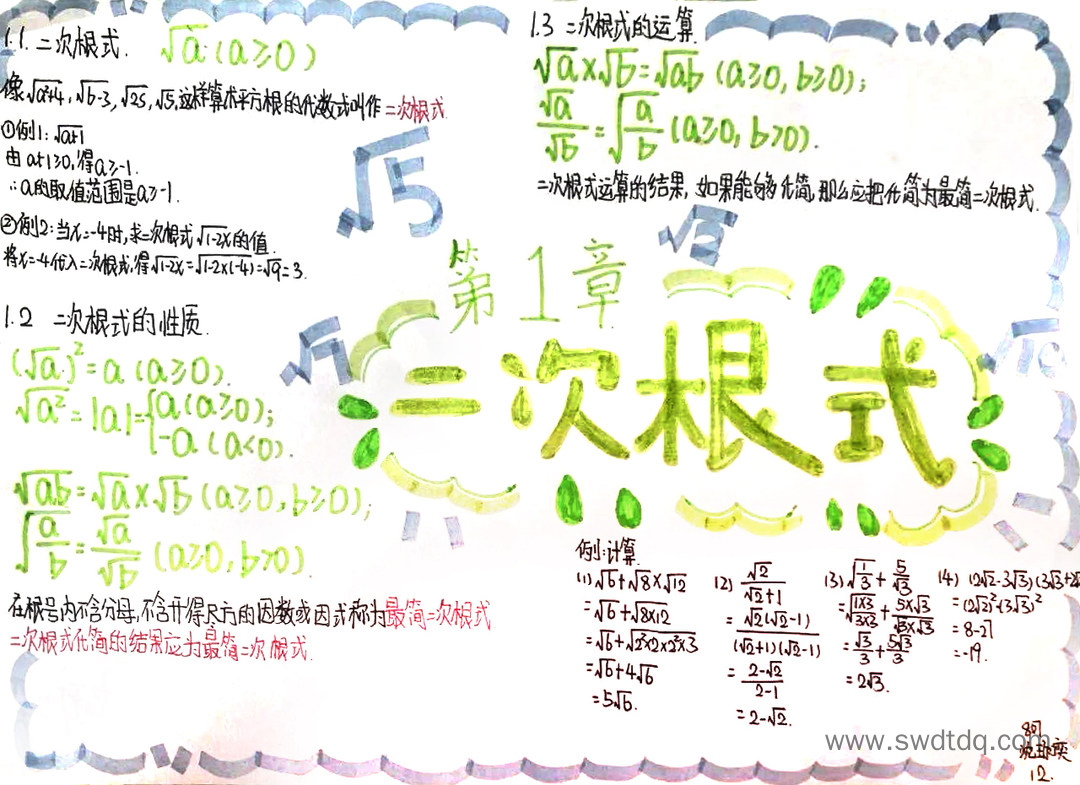 1.1. 二次根式. √a (a≥0)
像√a²+4, √b-3, √25, √5,这样算术平方根的代数式叫作二次根式.
①例1: √a+1
由a+1≥0,得a≥-1.
∴a的取值范围是a≥-1.
②例2:当x=-4时,求二次根式√1-2x的值.
将x=-4代入二次根式,得√1-2x=√1-2×(-4)=√9=3.
√5
1.2 二次根式的性质.
(√a)²=a (a≥0).
√a²=|a|={a(a≥0);
-a (a<0).
√ab=√a×√b (a≥0, b≥0);
√a/b=√a/√b (a≥0, b>0)
在根号内不含分母,不含开得尽方的因数或因式称为最简二次根式
二次根式化简的结果应为最简二次根式.
1.3 二次根式的运算.
√a×√b=√ab (a≥0, b≥0);
√a/√b=√a/b (a≥0, b>0).
二次根式运算的结果,如果能够化简,那么应把化简为最简二次根式.
√2
第1章
√7
√10
二次根式
例:计算
(1) √6+√8×√12
=√6+√8×12
=√6+√2²×2×2²×3
=√6+4√6
=5√6.
(2) √2/√2+1
=√2(√2-1)/(√2+1)(√2-1)
=2-√2/2-1
=2-√2.
(3) √1/3+5/√3
=√1×3/3×3+5×√3/√3×√3
=√3/3+5√3/3
=2√3.
(4) (2√2-3√3)(3√3+2√
=(2√2)²-(3√3)²
=8-27
=-19.
807
12.
www.swdtdq.com